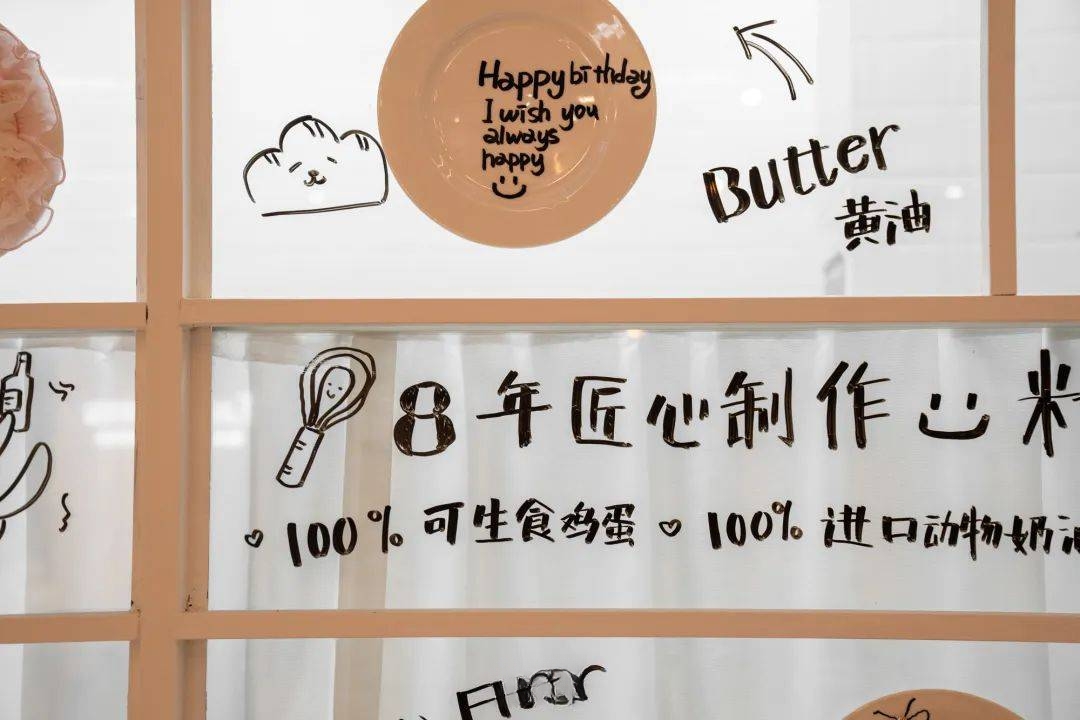 Happy birthday
I wish you
always
happy
Butter
黄油
8年匠心制作 料
100%可生食鸡蛋 100%进口动物奶油